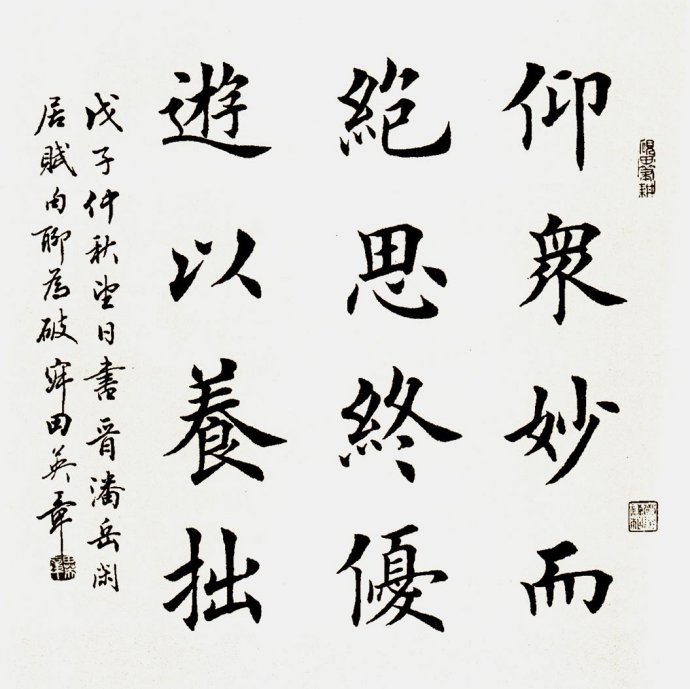 仰眾妙而
絕思終優
遊以養拙
戊子仲秋望日書晉潘岳閑
居賦句聊為破寂田英章